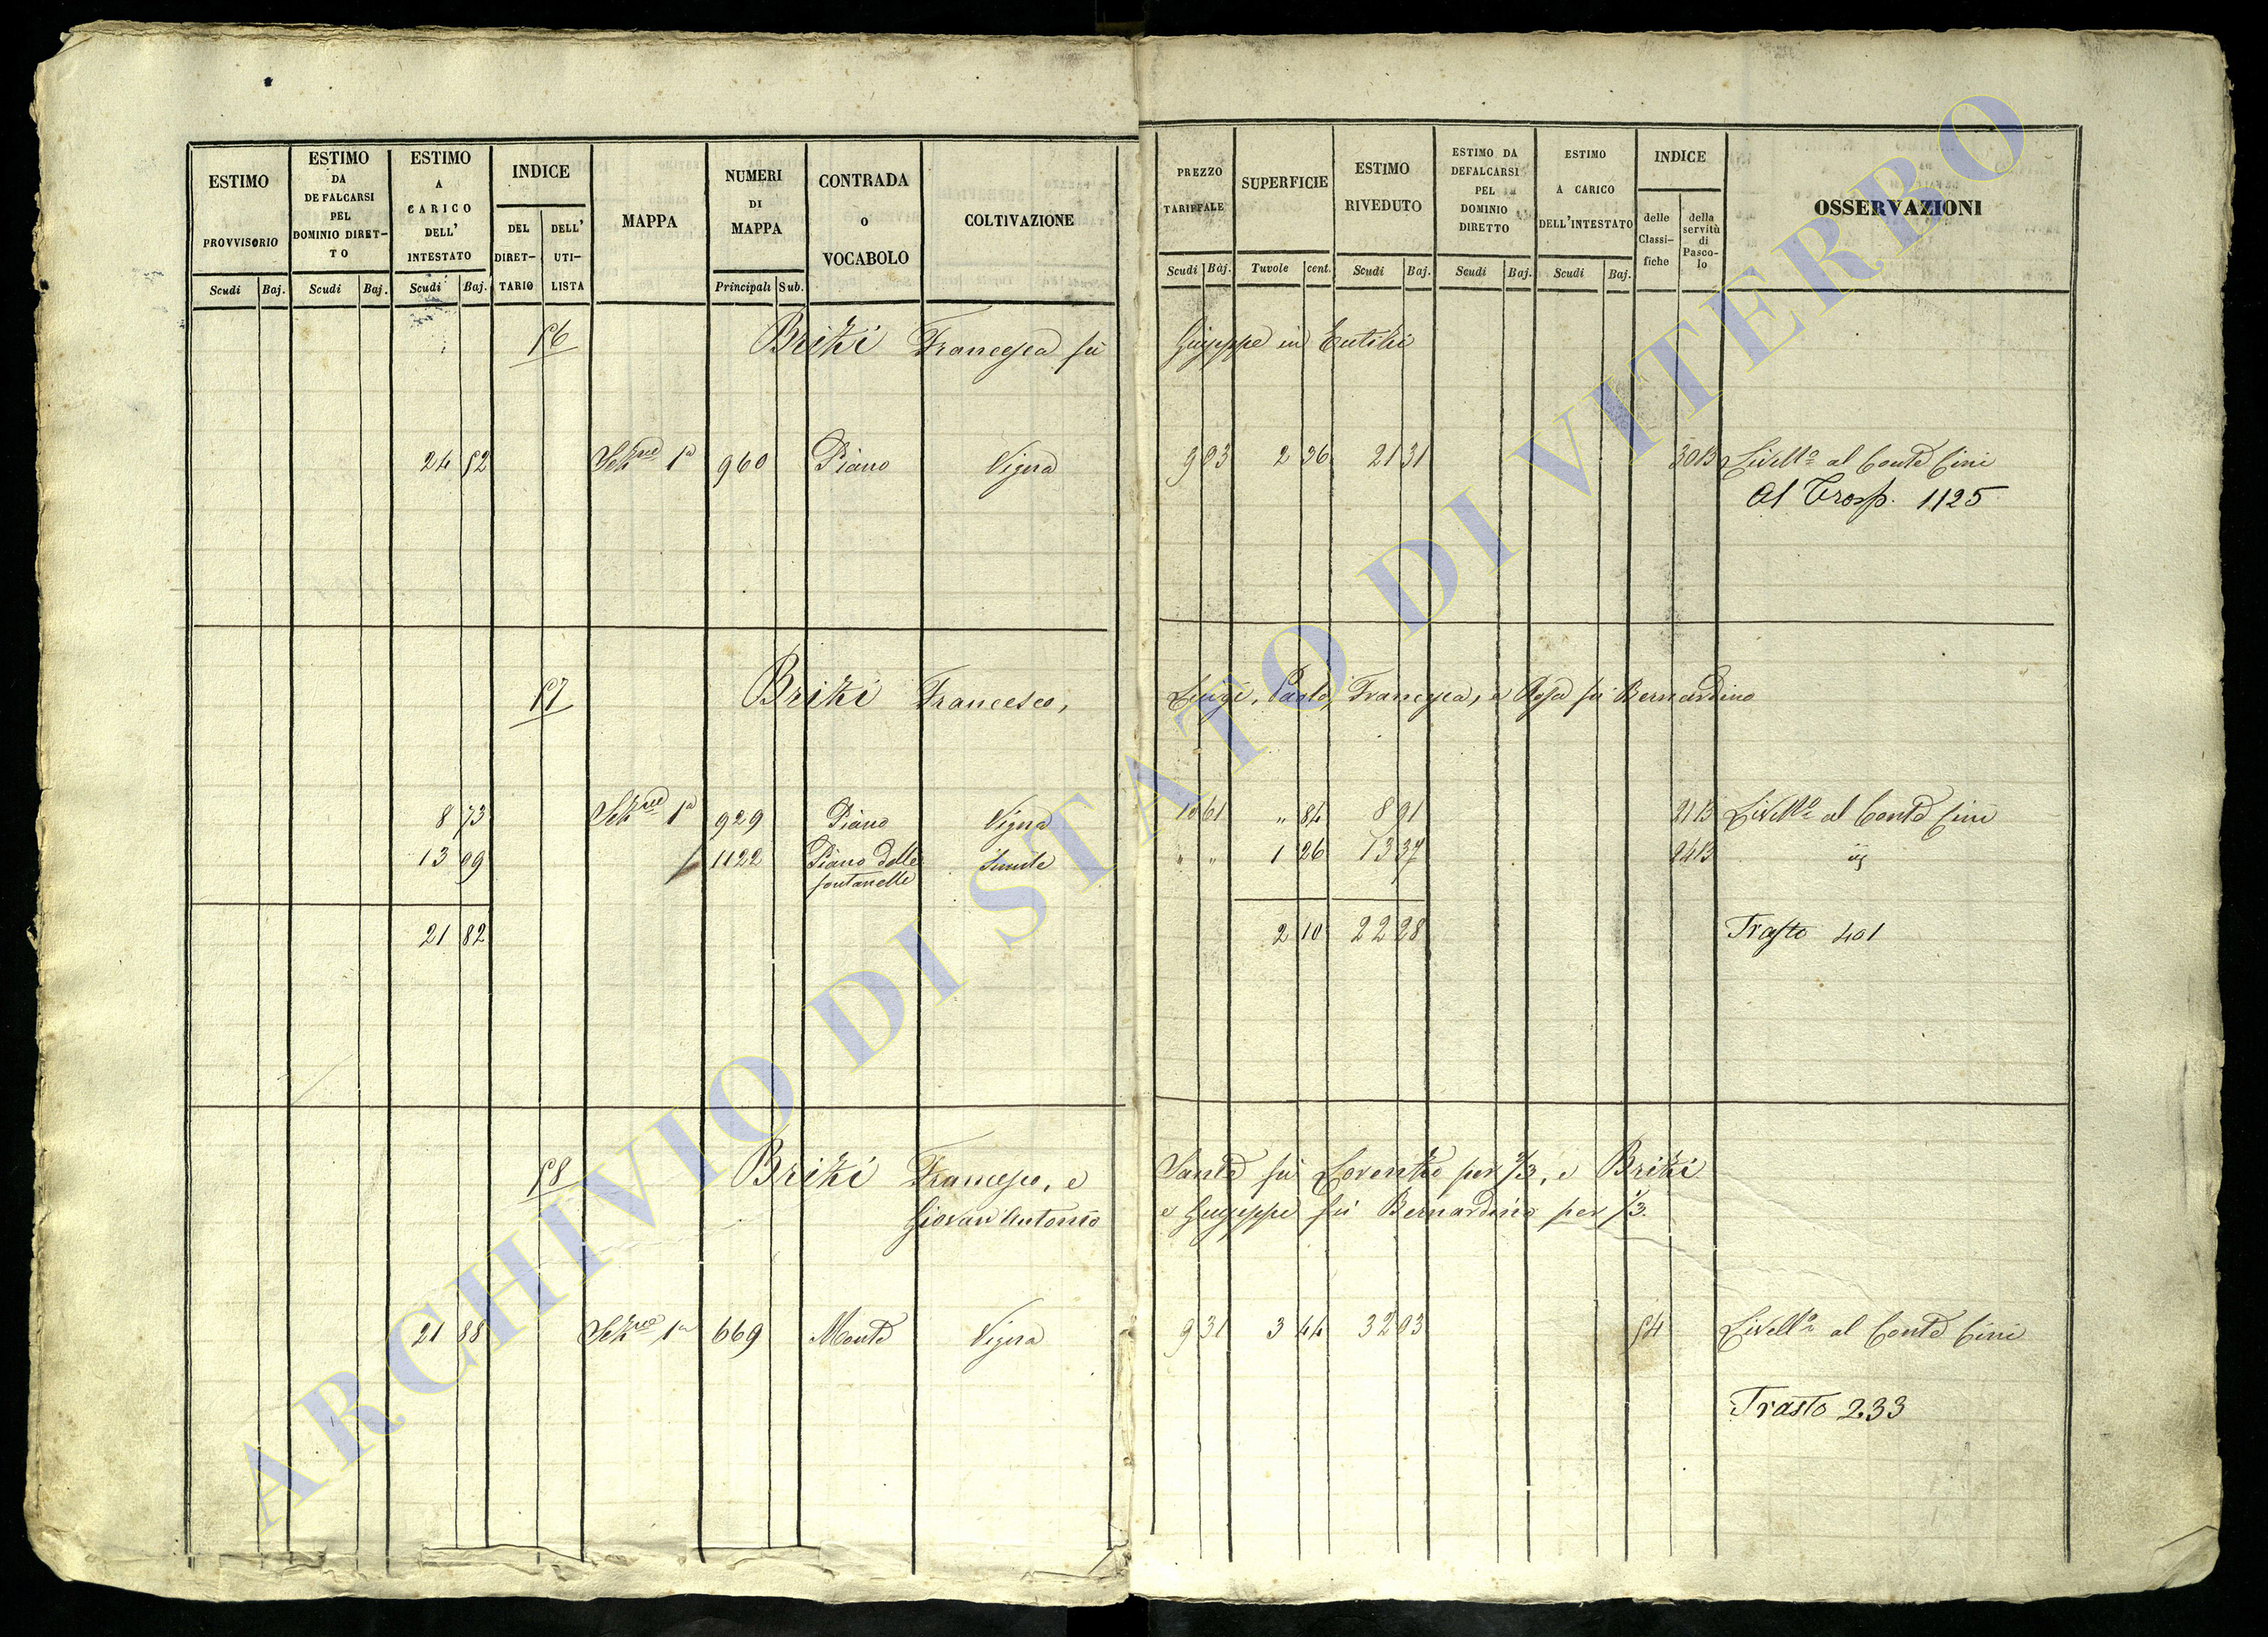 ESTIMO PROVVISORIO Scudi Baj.
ESTIMO DA DEFALCARSI PEL DOMINIO DIRET- TO Scudi Baj.
ESTIMO A CARICO DELL' INTESTATO Scudi Baj.
INDICE DEL DIRET- TARIO DELL' UTI- LISTA
MAPPA
NUMERI DI MAPPA Principali Sub.
CONTRADA O VOCABOLO
COLTIVAZIONE
PREZZO TARIFFALE Scudi Baj.
SUPERFICIE Tavole cent.
ESTIMO RIVEDUTO Scudi Baj.
ESTIMO DA DEFALCARSI PEL DOMINIO DIRETTO Scudi Baj.
ESTIMO A CARICO DELL'INTESTATO Scudi Baj.
INDICE delle Classi- fiche della servitù di Pasco- lo
OSSERVAZIONI
56 Brizi Francesca fù Giuseppe in Eutizi
24 52 Sezne 1a 960 Piano Vigna 9 03 2 36 21 31 301B Livello al Conte Cini
Al Trasp. 1125
57 Brizi Francesco, Luigi, Paolo, Francesca, e Rosa fù Bernardino
8 73 Sezne 1a 929 Piano Vigna 10 61 " 84 8 91 211B Livello al Conte Cini
13 09 1122 Piano delle fontanelle Simile " " 1 26 13 37 241B
21 82 2 10 22 28 Trasto 401
58 Brizi Francesco, e Sante fù Lorenzo per 2/3, e Brizi
Giovan'Antonio e Giuseppe fù Bernardino per 1/3.
21 88 Sezne 1a 669 Monte Vigna 9 31 3 44 32 03 54 Livello al Conte Cini
Trasto 233
ARCHIVIO DI STATO DI VITERBO